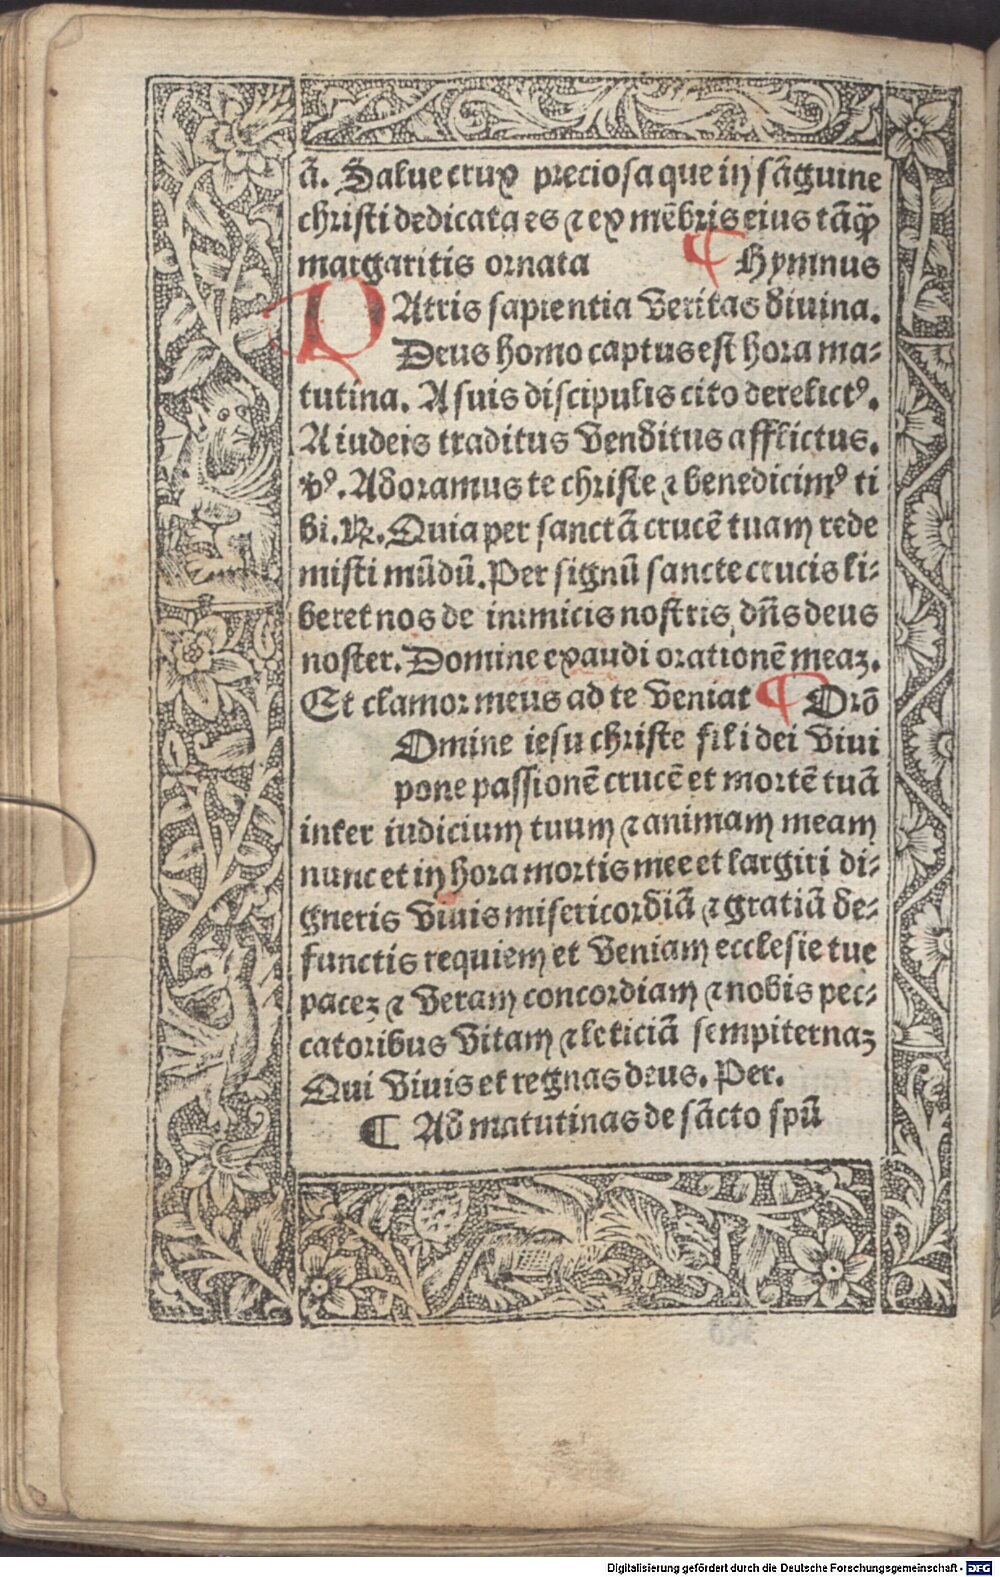 ā. Salue crux preciosa que in sāguine
christi dedicata es ⁊ ex mēbris eius tāq̄̃
margaritis ornata ¶ Hymnus
PAtris sapientia veritas diuina.
Deus homo captus est hora ma⸗
tutina. A suis discipulis cito derelictꝰ.
A iudeis traditus venditus afflictus.
v̾. Adoramus te christe ⁊ benedicimꝰ ti
bi. ℟. Quia per sanctā crucē tuam rede
misti mūdū. Per signū sancte crucis li⸗
beret nos de inimicis nostris dn̄s deus
noster. Domine exaudi orationē meaꝫ.
Et clamor meus ad te veniat ¶ Orō
Omine iesu christe fili dei viui
pone passionē crucē et mortē tuā
inter iudicium tuum ⁊ animam meam
nunc et in hora mortis mee et largiri di⸗
gneris viuis misericordiā ⁊ gratiā de⸗
functis requiem et veniam ecclesie tue
paceꝫ ⁊ veram concordiam ⁊ nobis pec⸗
catoribus vitam ⁊ leticiā sempiternaꝫ
Qui viuis et regnas deus. Per.
¶ Ad matutinas de sācto spū
Digitalisierung gefördert durch die Deutsche Forschungsgemeinschaft - DFG